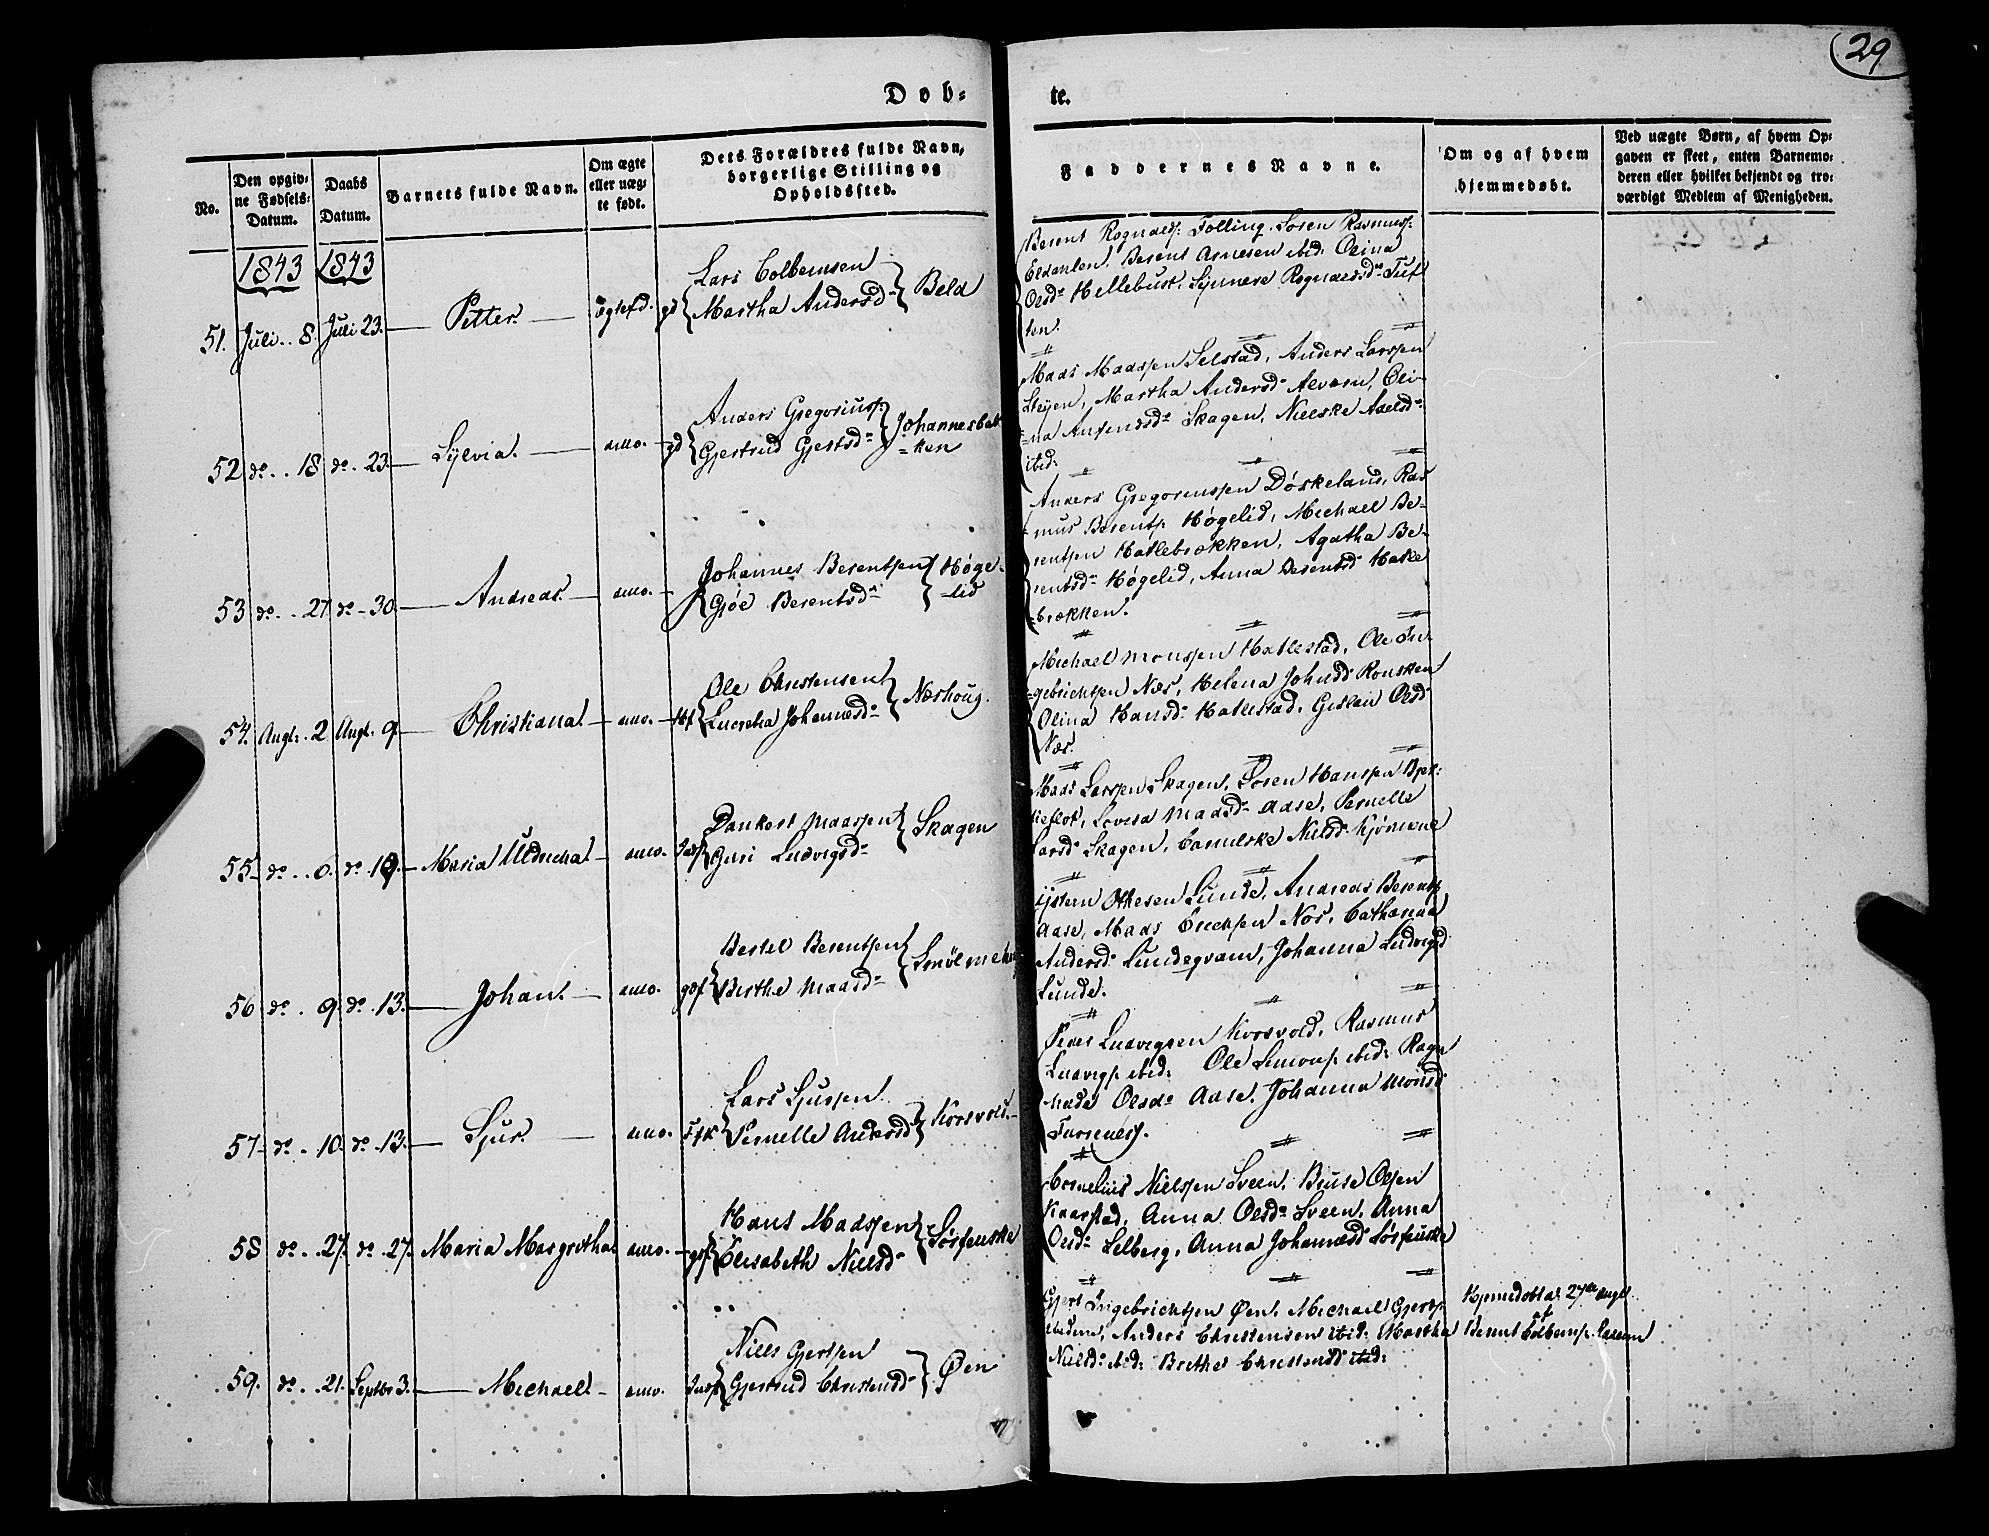 29
Døb-
te.
No.
Den opgiv-
ne Fødsels-
Datum.
Daabs
Datum.
Barnets fulde Navn.
Om ægte
eller uæg-
te født.
Dets Forældres fulde Navn,
borgerlige Stilling og
Opholdssted.
Faddernes Navne.
Om og af hvem
hjemmedøbt.
Ved uægte Børn, af hvem Op-
gaven er skeet, enten Barnemo-
deren eller hvilket bekjendt og tro-
værdigt Medlem af Menigheden.
1843 1843
51. Juli 8. Juli 23. Petter. ægtefd. gd
Lars Colbensen
Martha Andersd
Beld
Berent Rognalds. Tolling. Søren Rasmuss.
Berent Arnesen ibid: Olina
Olsd Hellebust, Synneve Rognaldsd Tuf
ten.
52 do 18 do 23. Sylvia. amo. gd
Anders Gregoriuss.
Gjertrud Gjertsd
Johannesbak
ken
Maas Maassen Selstad, Anders Larssen
Steyen, Martha Andersd Alværn, Oli-
na Skagen, Nielske Axelsd
ibid:
53 do 27. do 30. Andreas. amo.
Johannes Berentsen
Gjøe Berentsd
Høge-
lid
Anders Gregoriussen Døskeland, Ras
mus Berents. Høgelid, Michael Be-
rentsen Hatlebrækken, Agatha Be-
rentsd Høgelid, Anna Berentsd Hatle
brækken.
54. Augt. 2 Augt. 9. Christiana. amo. Hf
Ole Christensen
Lucretha Johannesd
Næshoug.
Michael Monssen Hatlestad, Ole In-
gebrichtsen Næs, Helena Johnsd
Olina Hansd Hatlestad, Olsd
Næs.
55 do 6. do 10. Maria Uldricha. amo.
Dankert Maassen
Guri Ludvigsd
Skagen
Maas Larssen Skagen, Søren Hanssen Bjer-
keflot, Lovisa Maasd Aase, Pernelle
Larsd Skagen, Nielsd
56 do 9. do 13. Johan. amo. gdf
Bertel Berentsen
Berthe Maasd
Othesen Lunde, Andreas Berents
Aase, Maas Erichsen Nos, Catharina
Andersd Lundeqvam, Johanna Ludvigsd
Lunde.
57 do 10. do 13. Sjur. amo.
Lars Sjursen
Pernelle Andersd
Korsvold.
Peder Ludvigsen Korsvold, Rasmus
Ludvigs. ibid: Ole ibid: Ragn
hilde Olsd Aase, Johanna Monsd
58 do 27. do 27. Maria Margretha amo. gdf
Hans Madssen
Elisabeth Nielsd
Sørfenske
Cornelius Nielssen Sveen, Olsen
Kaarstad, Anna Olsd Sveen, Anna
Olsd Selberg, Anna Johannesd Sørfenske
59. do 21. Septbr 3. Michael. amo.
Niels Gjertsen
Gjertrud Christensd
Øen
Gjert Ingebrichtsen Øen, Michael Gjerts.
ibidem, Anders Christensen ibid: Martha
Nielsd ibid: Brithe Christensd ibid:
Hjemedøbt d. 27de Augt.
af
Berent Colbens.